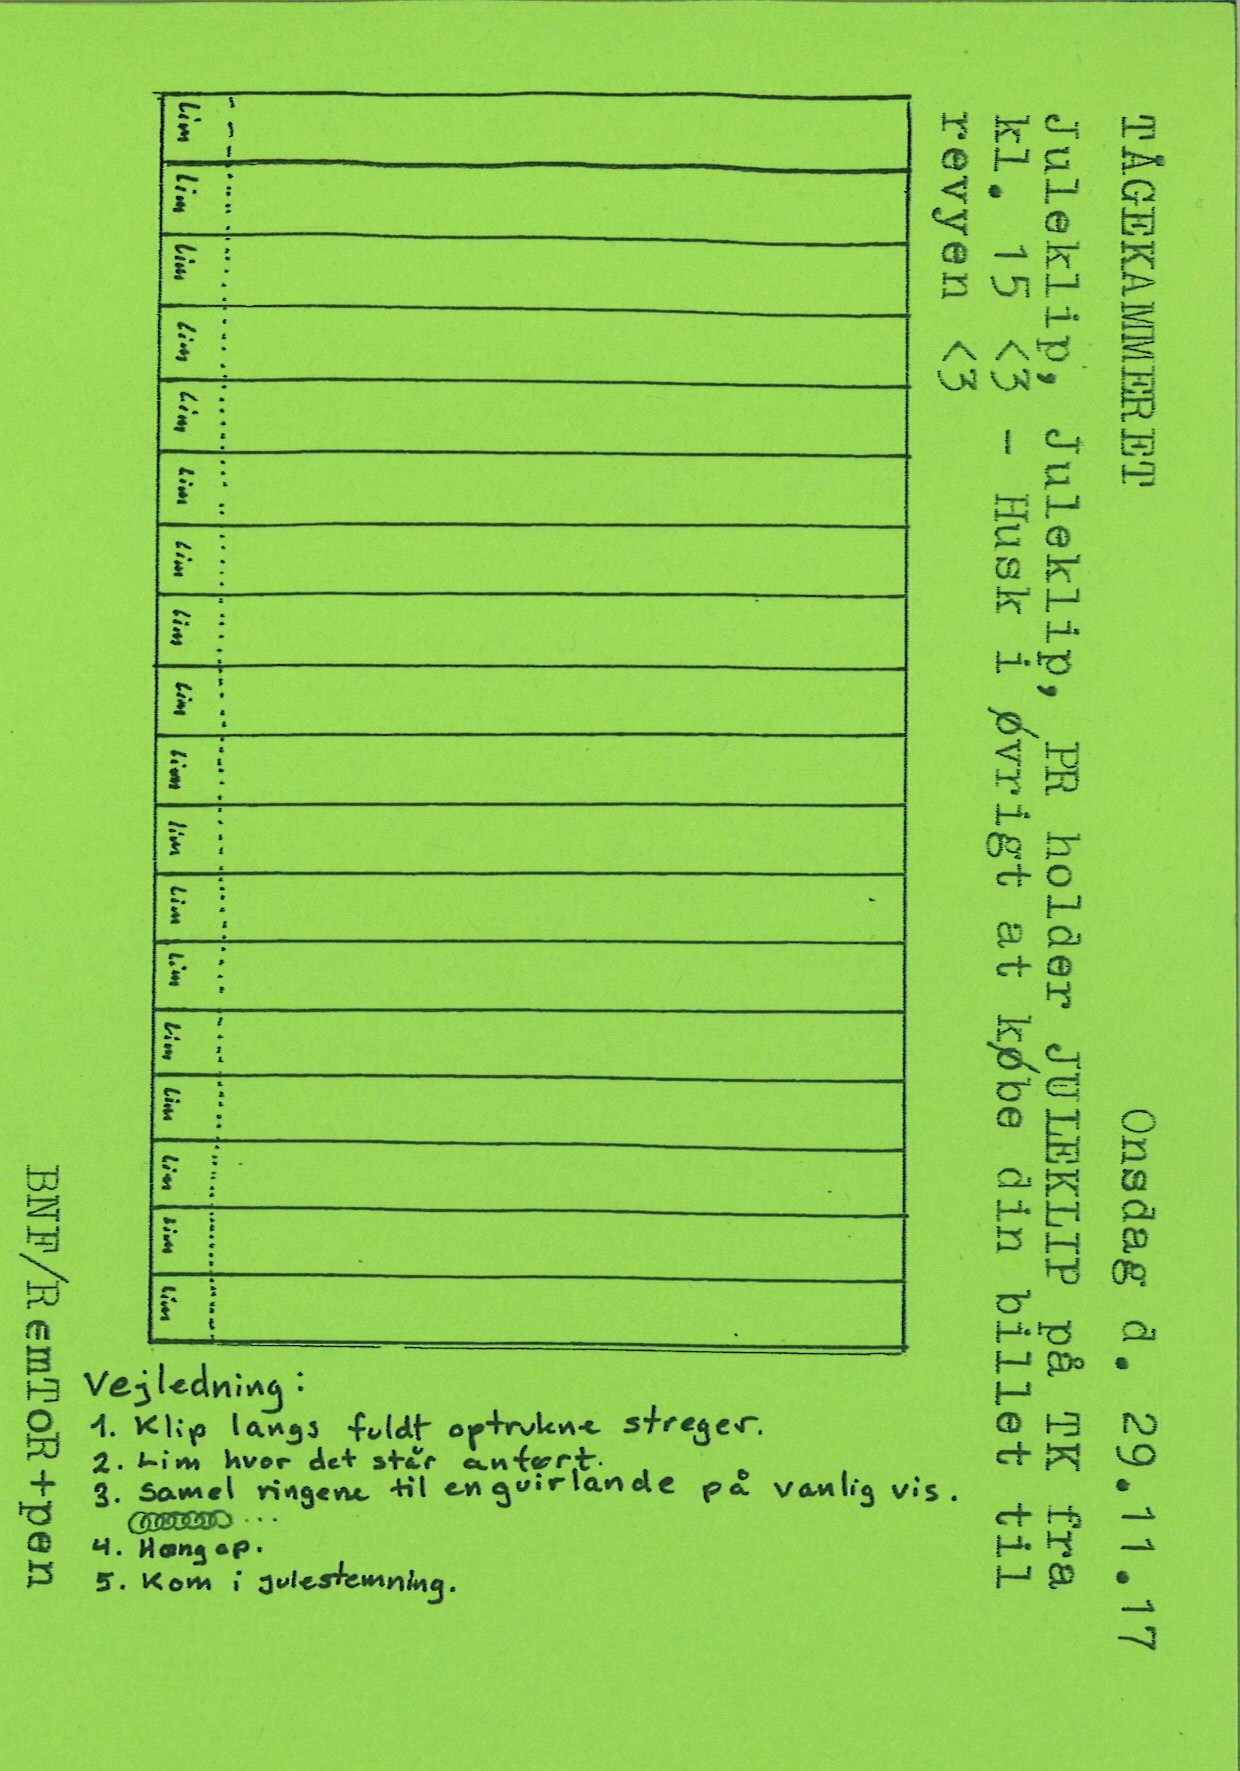 TÅGEKAMMERET Onsdag d. 29.11.17
Juleklip, Juleklip, Juleklip, PR holder JULEKLIP på TK fra
kl. 15 <3 - Husk i øvrigt at købe din billet til
revyen <3
Lim
Lim
Lim
Lim
Lim
Lim
Lim
Lim
Lim
Lim
Lim
Lim
Lim
Lim
Lim
Lim
Lim
Lim
Vejledning:
1. Klip langs fuldt optrukne streger.
2. Lim hvor det står anført.
3. Samel ringene til en guirlande på vanlig vis.
...
4. Hæng op.
5. Kom i julestemning.
BNF/RemToR+pen